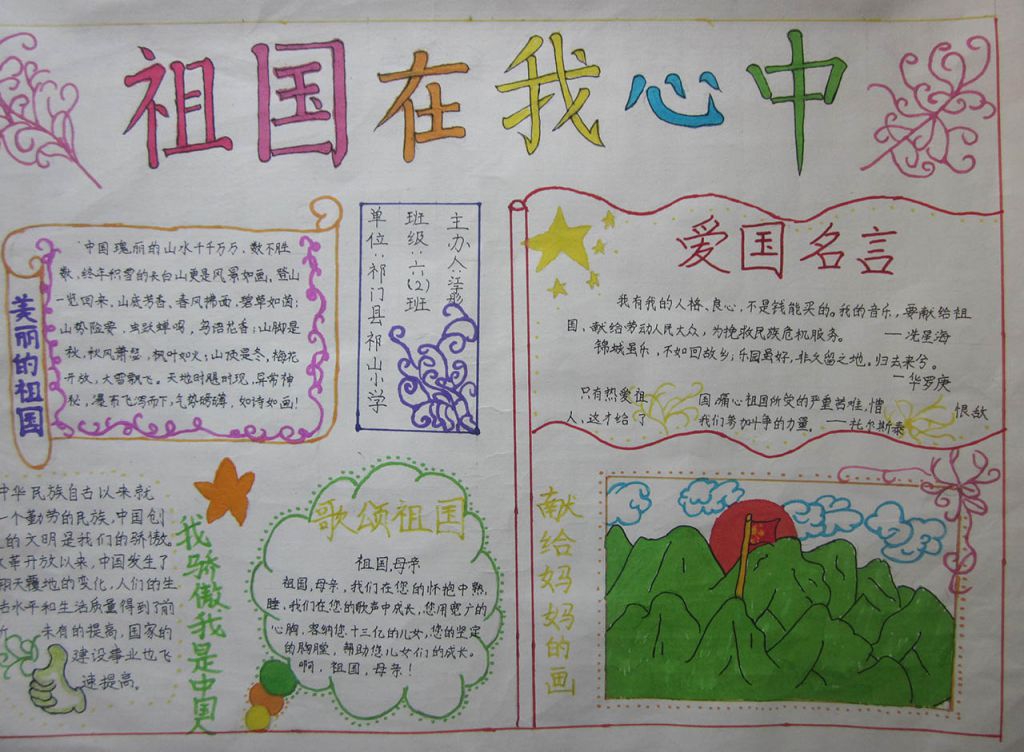 祖国在我心中
美丽的祖国
中国瑰丽的山水千千万万,数不胜
数,终年积雪的长白山更是风景如画,登山
一览回来,山底芳香,春风拂面,碧草如茵;
山势险要,虫跃蝉鸣,鸟语花香;山脚是
秋,秋风萧瑟,枫叶如火;山顶是冬,梅花
开放,大雪飘飞。天地时隐时现,异常神
秘,瀑布飞泻而下,气势磅礴,如诗如画!
主办人:
班级:六(2)班
单位:祁门县祁山小学
爱国名言
我有我的人格、良心,不是钱能买的。我的音乐,要献给祖
国、献给劳动人民大众,为挽救民族危机服务。 —冼星海
锦城虽乐,不如回故乡;乐园虽好,非久留之地。归去来兮。
—华罗庚
只有热爱祖国,痛心祖国所受的严重苦难,憎恨敌
人,这才给了我们参加斗争的力量。 —托尔斯泰
中华民族自古以来就
一个勤劳的民族,中国创
的文明是我们的骄傲。
改革开放以来,中国发生了
翻天覆地的变化,人们的生
活水平和生活质量得到了前
所未有的提高,国家的
建设事业也飞
速提高。
我骄傲我是中国人
歌颂祖国
祖国,母亲
祖国,母亲,我们在您的怀抱中熟
睡,我们在您的歌声中成长,您用宽广的
心胸,容纳您十三亿的儿女,您的坚定
的胸膛,帮助您儿女们的成长。
啊,祖国,母亲!
献给妈妈的画